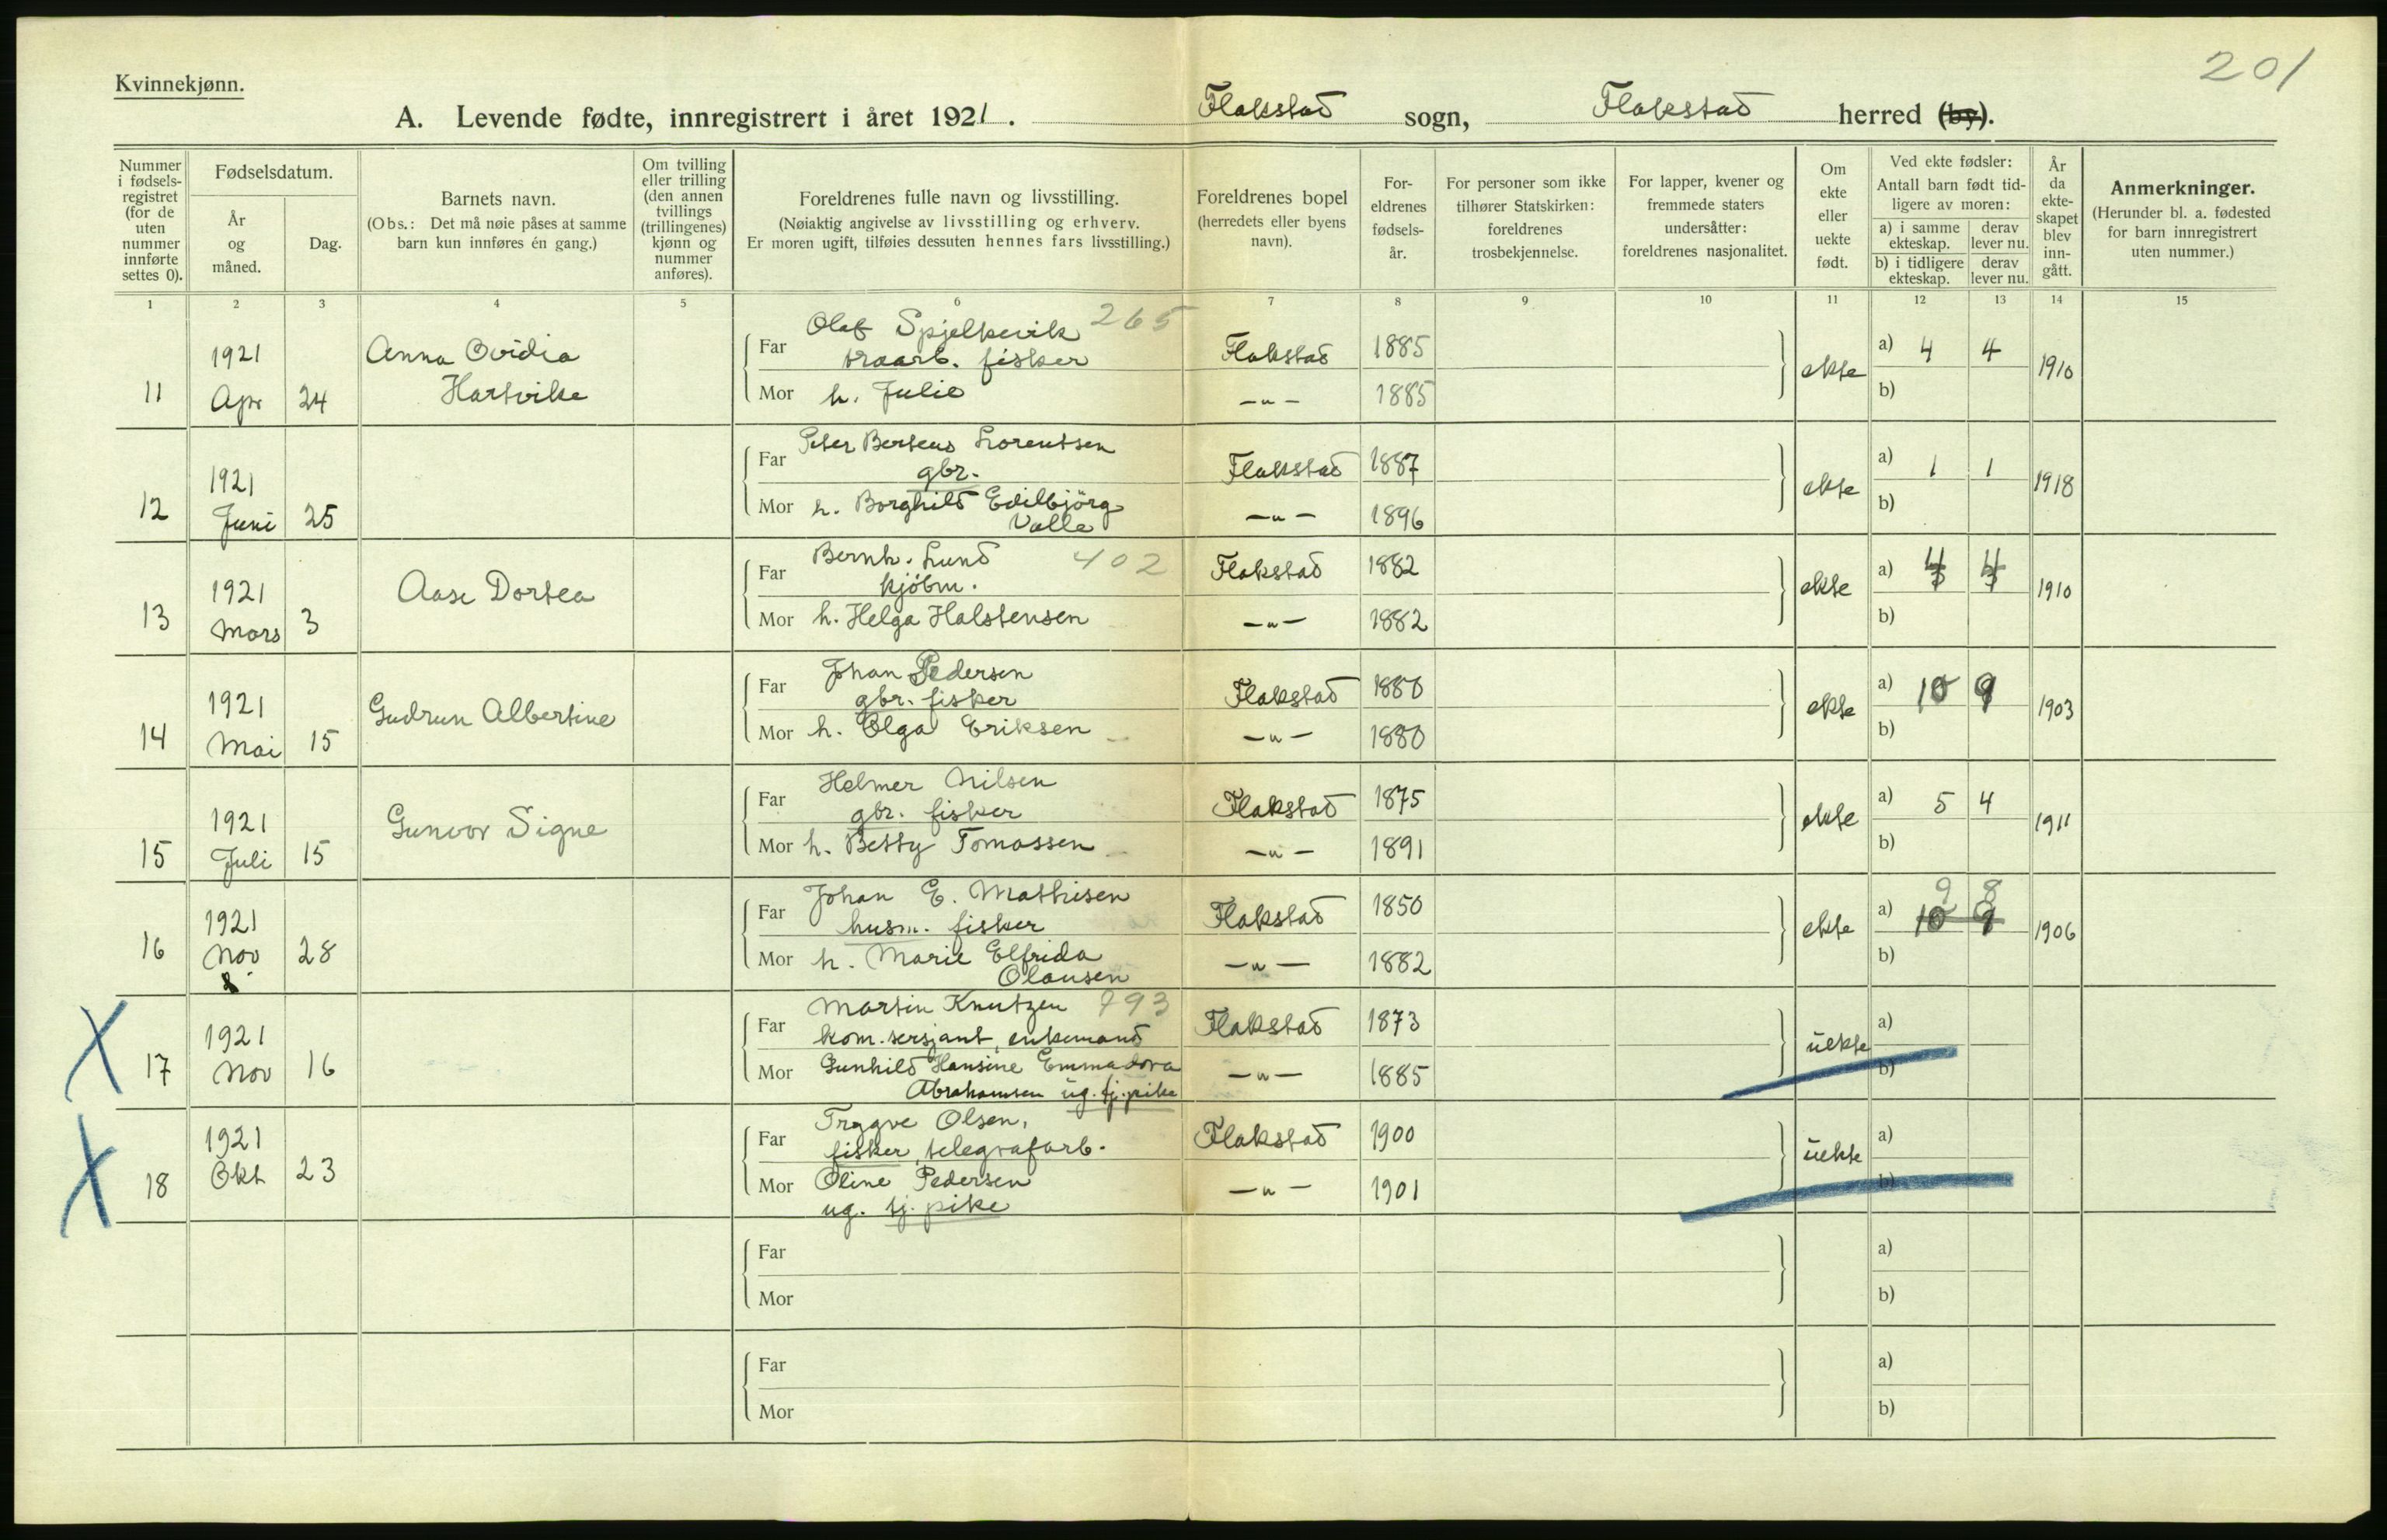 201
Kvinnekjønn.
A. Levende fødte, innregistrert i året 1921. Flakstad sogn, Flakstad herred (by).
Nummer i fødsels-registret (for de uten nummer innførte settes 0).
Fødselsdatum.
År og måned.
Dag.
Barnets navn.
(Obs.: Det må nøie påses at samme barn kun innføres én gang.)
Om tvilling eller trilling (den annen tvillings (trillingenes) kjønn og nummer anføres).
Foreldrenes fulle navn og livsstilling.
(Nøiaktig angivelse av livsstilling og erhverv.
Er moren ugift, tilføies dessuten hennes fars livsstilling.)
Foreldrenes bopel (herredets eller byens navn).
For-eldrenes fødsels-år.
For personer som ikke tilhører Statskirken: foreldrenes trosbekjennelse.
For lapper, kvener og fremmede staters undersåtter: foreldrenes nasjonalitet.
Om ekte eller uekte født.
Ved ekte fødsler:
Antall barn født tid-ligere av moren:
a) i samme ekteskap. derav lever nu.
b) i tidligere ekteskap. derav lever nu.
År da ekte-skapet blev inn-gått.
Anmerkninger.
(Herunder bl. a. fødested for barn innregistrert uten nummer.)
1 2 3 4 5 6 7 8 9 10 11 12 13 14 15
11 1921 Apr 24 Anna Ovidia Hartvika
Far Olaf Spjelkevik 265
fisker Flakstad 1885
Mor h. Julie —„— 1885
ekte a) 4 4 b) 1910
12 1921 Juni 25
Far Peter Berteus Lorentsen
gbr. Flakstad 1887
Mor h. Borghild Edilbjörg
Valle —„— 1896
ekte a) 1 1 b) 1918
13 1921 Mars 3 Aase Dortea
Far Bernh. Lund 402
kjøbm. Flakstad 1882
Mor h. Helga Halstensen —„— 1882
ekte a) 4 4 b) 1910
14 1921 Mai 15 Gudrun Albertine
Far Johan Pedersen
gbr. fisker Flakstad 1880
Mor h. Olga Eriksen —„— 1880
ekte a) 10 9 b) 1903
15 1921 Juli 15 Gunvor Signe
Far Helmer Nilsen
gbr. fisker Flakstad 1875
Mor h. Betty Tomassen —„— 1891
ekte a) 5 4 b) 1911
16 1921 Nov 28
Far Johan E. Mathisen
husm. fisker Flakstad 1850
Mor h. Marie Elfrida
Olausen —„— 1882
ekte 9 8 a) 10 9 b) 1906
X 17 1921 Nov 16
Far Martin Knutzen 793
kom. sersjant, enkemand Flakstad 1873
Mor Gunhild Hansine Emmadora
Abrahamsen ug. tj. pike —„— 1885
uekte a) b)
X 18 1921 Okt 23
Far Trygve Olsen,
fisker, telegrafarb. Flakstad 1900
Mor Oline Pedersen
ug. tj. pike —„— 1901
uekte a) b)
Far a)
Mor b)
Far a)
Mor b)